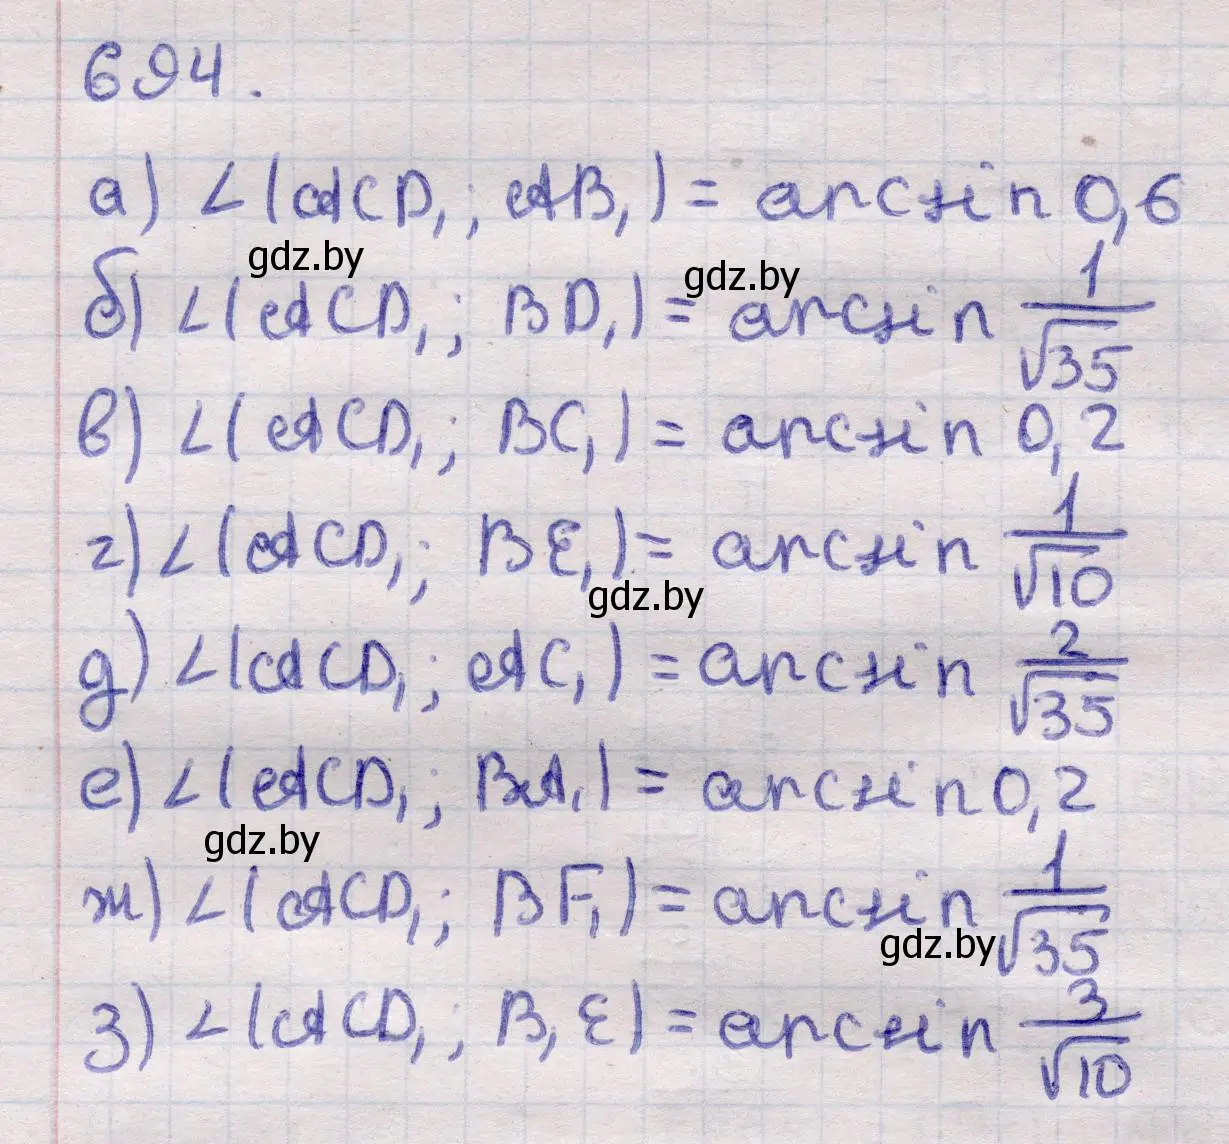 694.
а) ∠(ACD₁; AB₁) = arcsin 0,6
gdz.by
gdz.by
б) ∠(ACD₁; BD₁) = arcsin 1/√35
в) ∠(ACD₁; BC₁) = arcsin 0,2
г) ∠(ACD₁; BE₁) = arcsin 1/√10
gdz.by
д) ∠(ACD₁; AC₁) = arcsin 2/√35
е) ∠(ACD₁; BA₁) = arcsin 0,2
gdz.by
ж) ∠(ACD₁; BF₁) = arcsin 1/√35
gdz.by
з) ∠(ACD₁; B₁E) = arcsin 3/√10